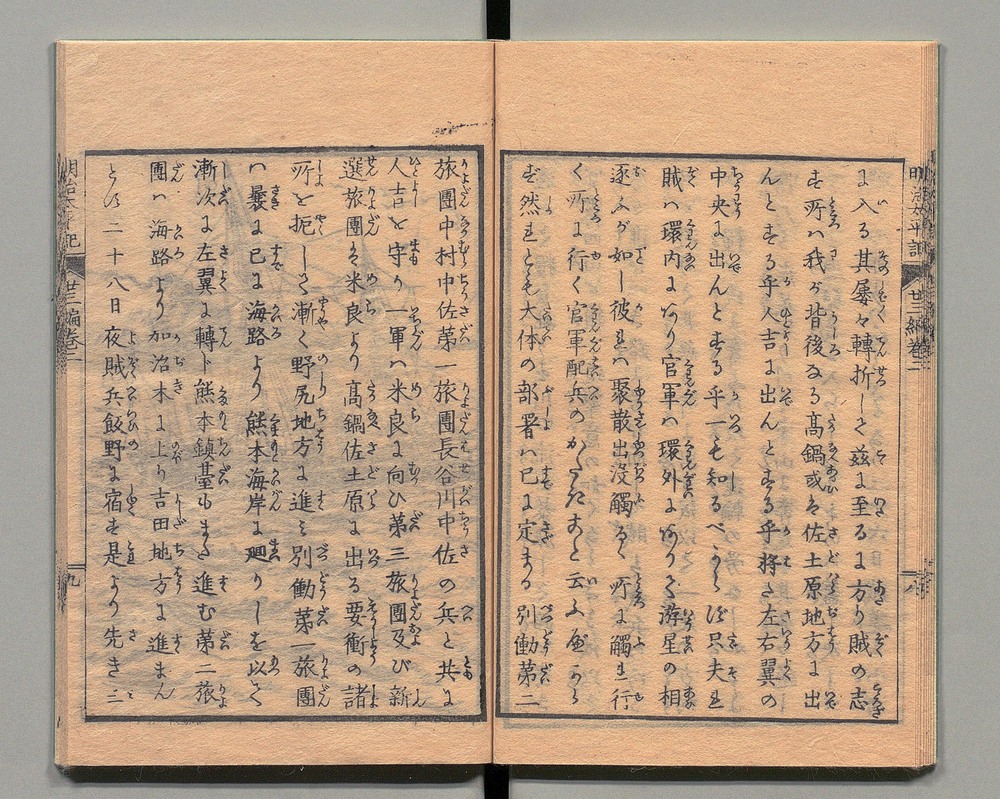 明治太平記 廿三編卷二 八
に入る其屡々轉折して茲に至るに方り賊の志
す所ハ我が背後なる高鍋或ハ佐土原地方に出
んとする乎人吉に出んとする乎将さ左右翼の
中央に出んとする乎一も知るべからず只夫れ
賊ハ環内に在り官軍ハ環外に在りて游星の相
逐ふが如し彼れハ聚散出没觸るゝ所に觸れ行
く所に行く官軍配兵のかたきこと云ふ可から
ず然れども大体の部署ハ已に定まる別働第二
旅團中村中佐第一旅團長谷川中佐の兵と共に
人吉を守り一軍ハ米良に向ひ第三旅團及び新
選旅團ハ米良より高鍋佐土原に出る要衝の諸
所を扼して漸く野尻地方に進み別働第一旅團
ハ曩に已に海路より熊本海岸に廻りしを以て
漸次に左翼に轉じ熊本鎮臺もまた進む第二旅
團ハ海路より加治木に上り吉田地方に進まん
とす二十八日夜賊兵飯野に宿す是より先き三
明治太平記 廿三編卷二 九